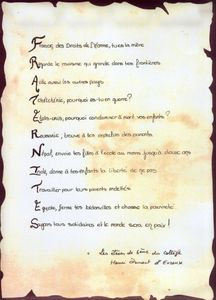 France, des Droits de l'Homme, tu es la mère
Regarde le racisme qui grandit dans tes frontières
Aide aussi les autres pays
Tchétchénie, pourquoi es-tu en guerre ?
États-unis, pourquoi condamner à mort vos enfants ?
Roumanie, trouve à tes orphelins des parents.
Népal, envoie tes filles à l'école au moins jusqu'à douze ans
Inde, donne à tes enfants la liberté de ne pas
Travailler pour leurs parents endettés
Egypte, ferme tes bidonvilles et chasse la pauvreté.
Soyons tous solidaires et le monde sera en paix !
Les élèves de 6ème du collège
Henri Dunant d'Evreux